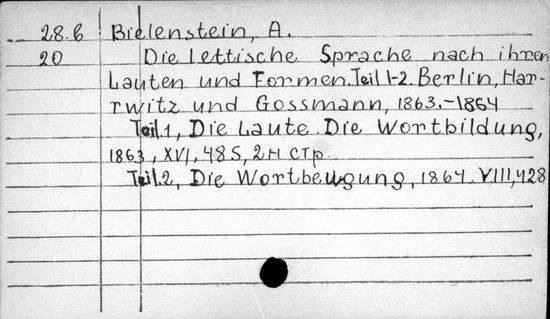 28.6 Bielenstein, A.
20 Die lettische Sprache nach ihren
Lauten und Formen. Teil 1-2. Berlin, Har-
rwitz und Gossmann, 1863.-1864
Teil.1, Die Laute. Die Wortbildung,
1863, XVI, 485, 2 н стр.
Teil.2, Die Wortbeugung, 1864. VIII, 428